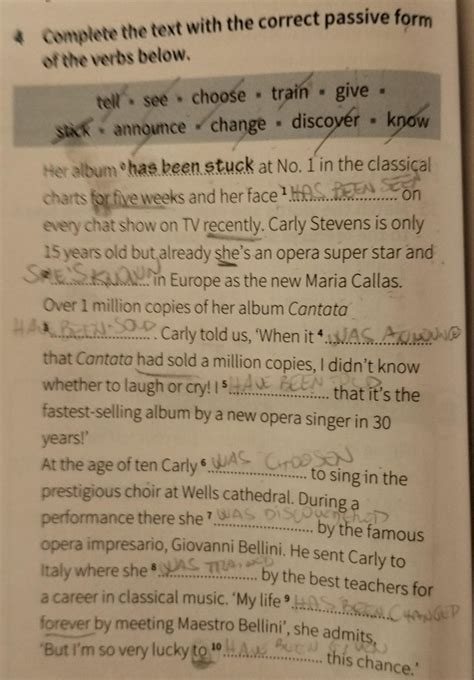 4 Complete the text with the correct passive form
of the verbs below.
tell • see • choose • train • give •
stick • announce • change • discover • know
Her album ⁰has been stuck at No. 1 in the classical
charts for five weeks and her face ¹ HAS BEEN SEEN on
every chat show on TV recently. Carly Stevens is only
15 years old but already she's an opera super star and
² SHE'S KNOWN in Europe as the new Maria Callas.
Over 1 million copies of her album Cantata
³ HAVE BEEN SOLD. Carly told us, 'When it ⁴ WAS
that Cantata had sold a million copies, I didn't know
whether to laugh or cry! I ⁵ HAVE BEEN TOLD that it's the
fastest-selling album by a new opera singer in 30
years!'
At the age of ten Carly ⁶ WAS CHOOSEN to sing in the
prestigious choir at Wells cathedral. During a
performance there she ⁷ WAS by the famous
opera impresario, Giovanni Bellini. He sent Carly to
Italy where she ⁸ WAS TRAINED by the best teachers for
a career in classical music. 'My life ⁹ HAS BEEN CHANGED
forever by meeting Maestro Bellini', she admits,
'But I'm so very lucky to ¹⁰ HAVE BEEN GIVEN this chance.'